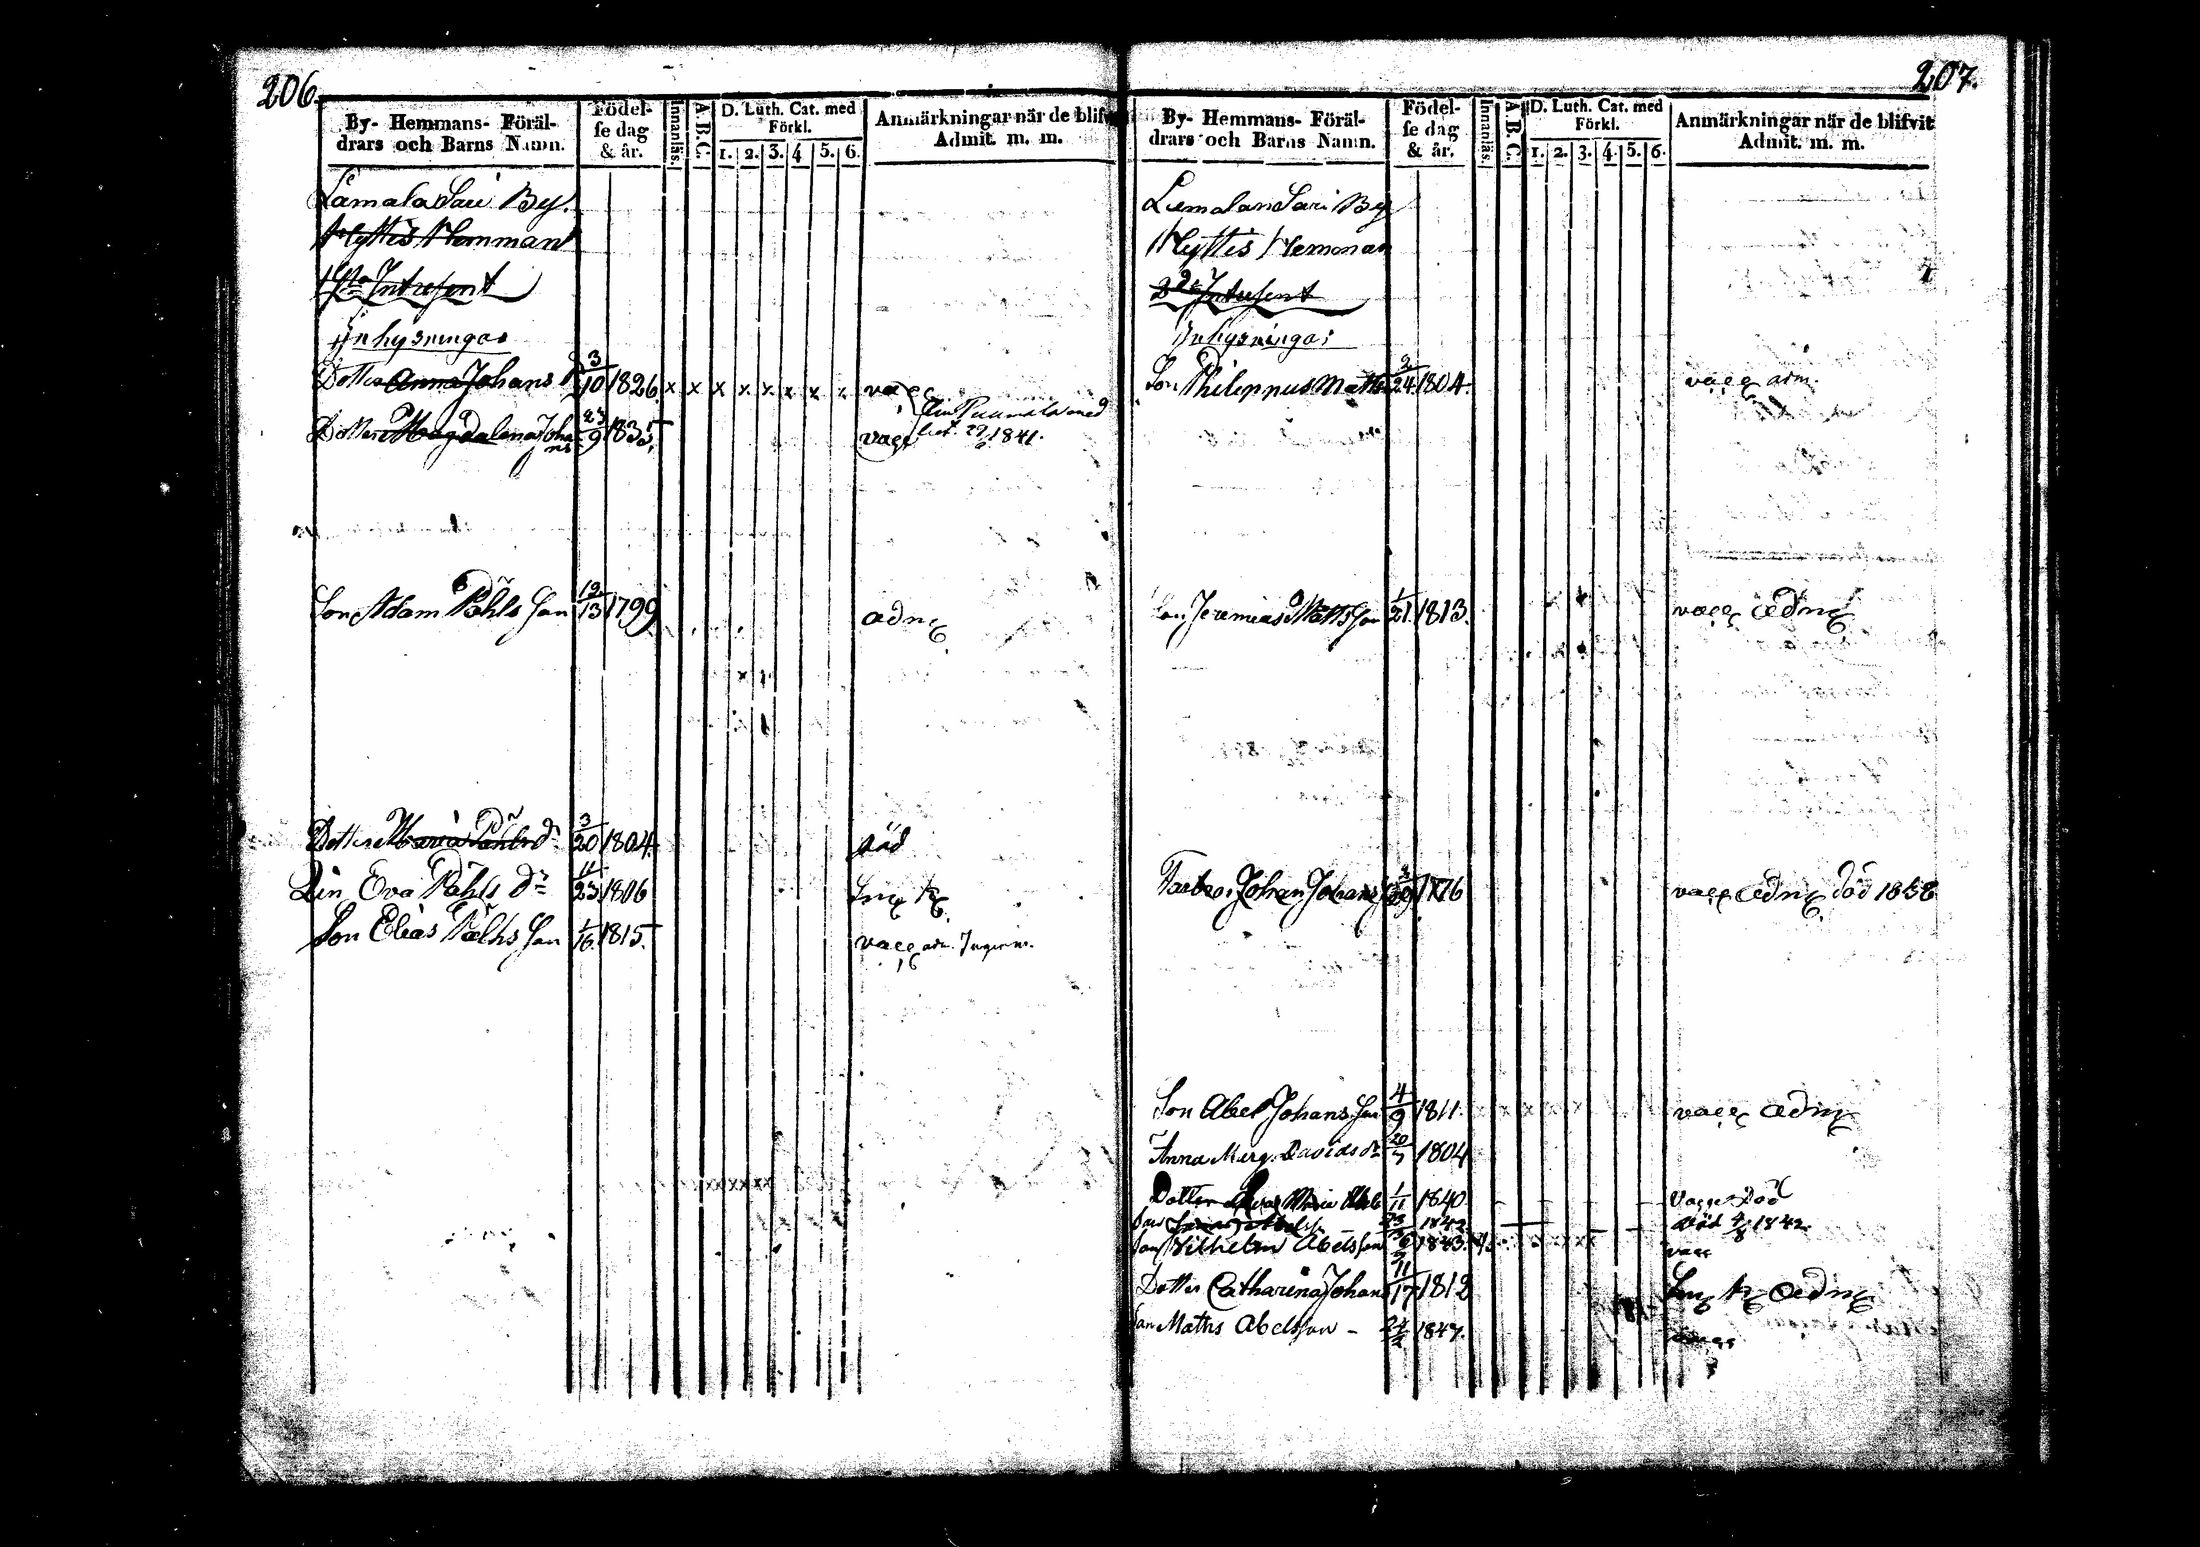 206.
By- Hemmans- Föräl-
drars och Barns Namn.
Födel-
se dag
& år.
Innanläs.
A. B. C.
D. Luth. Cat. med
Förkl.
1. 2. 3. 4 5. 6.
Anmärkningar när de blifvit
Admit. m. m.
Lamala Sari By.
Hyttis Hemman
1sta Intressent
Inhysningar
Dotter Anna Johans 3/10 1826 x x x x x x x x vacc
Puumala med
bet. 29/6 1841.
Dotter Magdalena Johans 23/9 1835 vacc
Son Adam Påhls Son 12/13 1799 adm
Dotter Maria Påhls dr 3/20 1804 död
Pin Eva Påhls dr 11/23 1806
Son Elias Påhls Son 1/16. 1815. vacc adm.
16
207.
By- Hemmans- Föräl-
drars och Barns Namn.
Födel-
se dag
& år.
Innanläs.
A. B. C.
D. Luth. Cat. med
Förkl.
1. 2. 3. 4. 5. 6.
Anmärkningar när de blifvit
Admit. m. m.
Lamalan Sari By
Hyttis Hemman
2dra Intressent
Inhysningar
Son Philippus Matts 2/24 1804. vacc adm.
Son Jeremias Matts Son 1/21. 1813. vacc adm
Johan Johans 1776 vacc adm död 1838
Son Abel Johans Son 4/9 1811. vacc adm
Anna Marg. Davids dr 20/7 1804
Dotter Maria Abels 1/11 1840 Vacc Död
Son 1842 död 4/8 1842.
Son Vilhelm Abelsson 1843. vacc
Dotter Catharina Johans 11/17 1812 adm
Son Matts Abelsson - 24/2 1847.